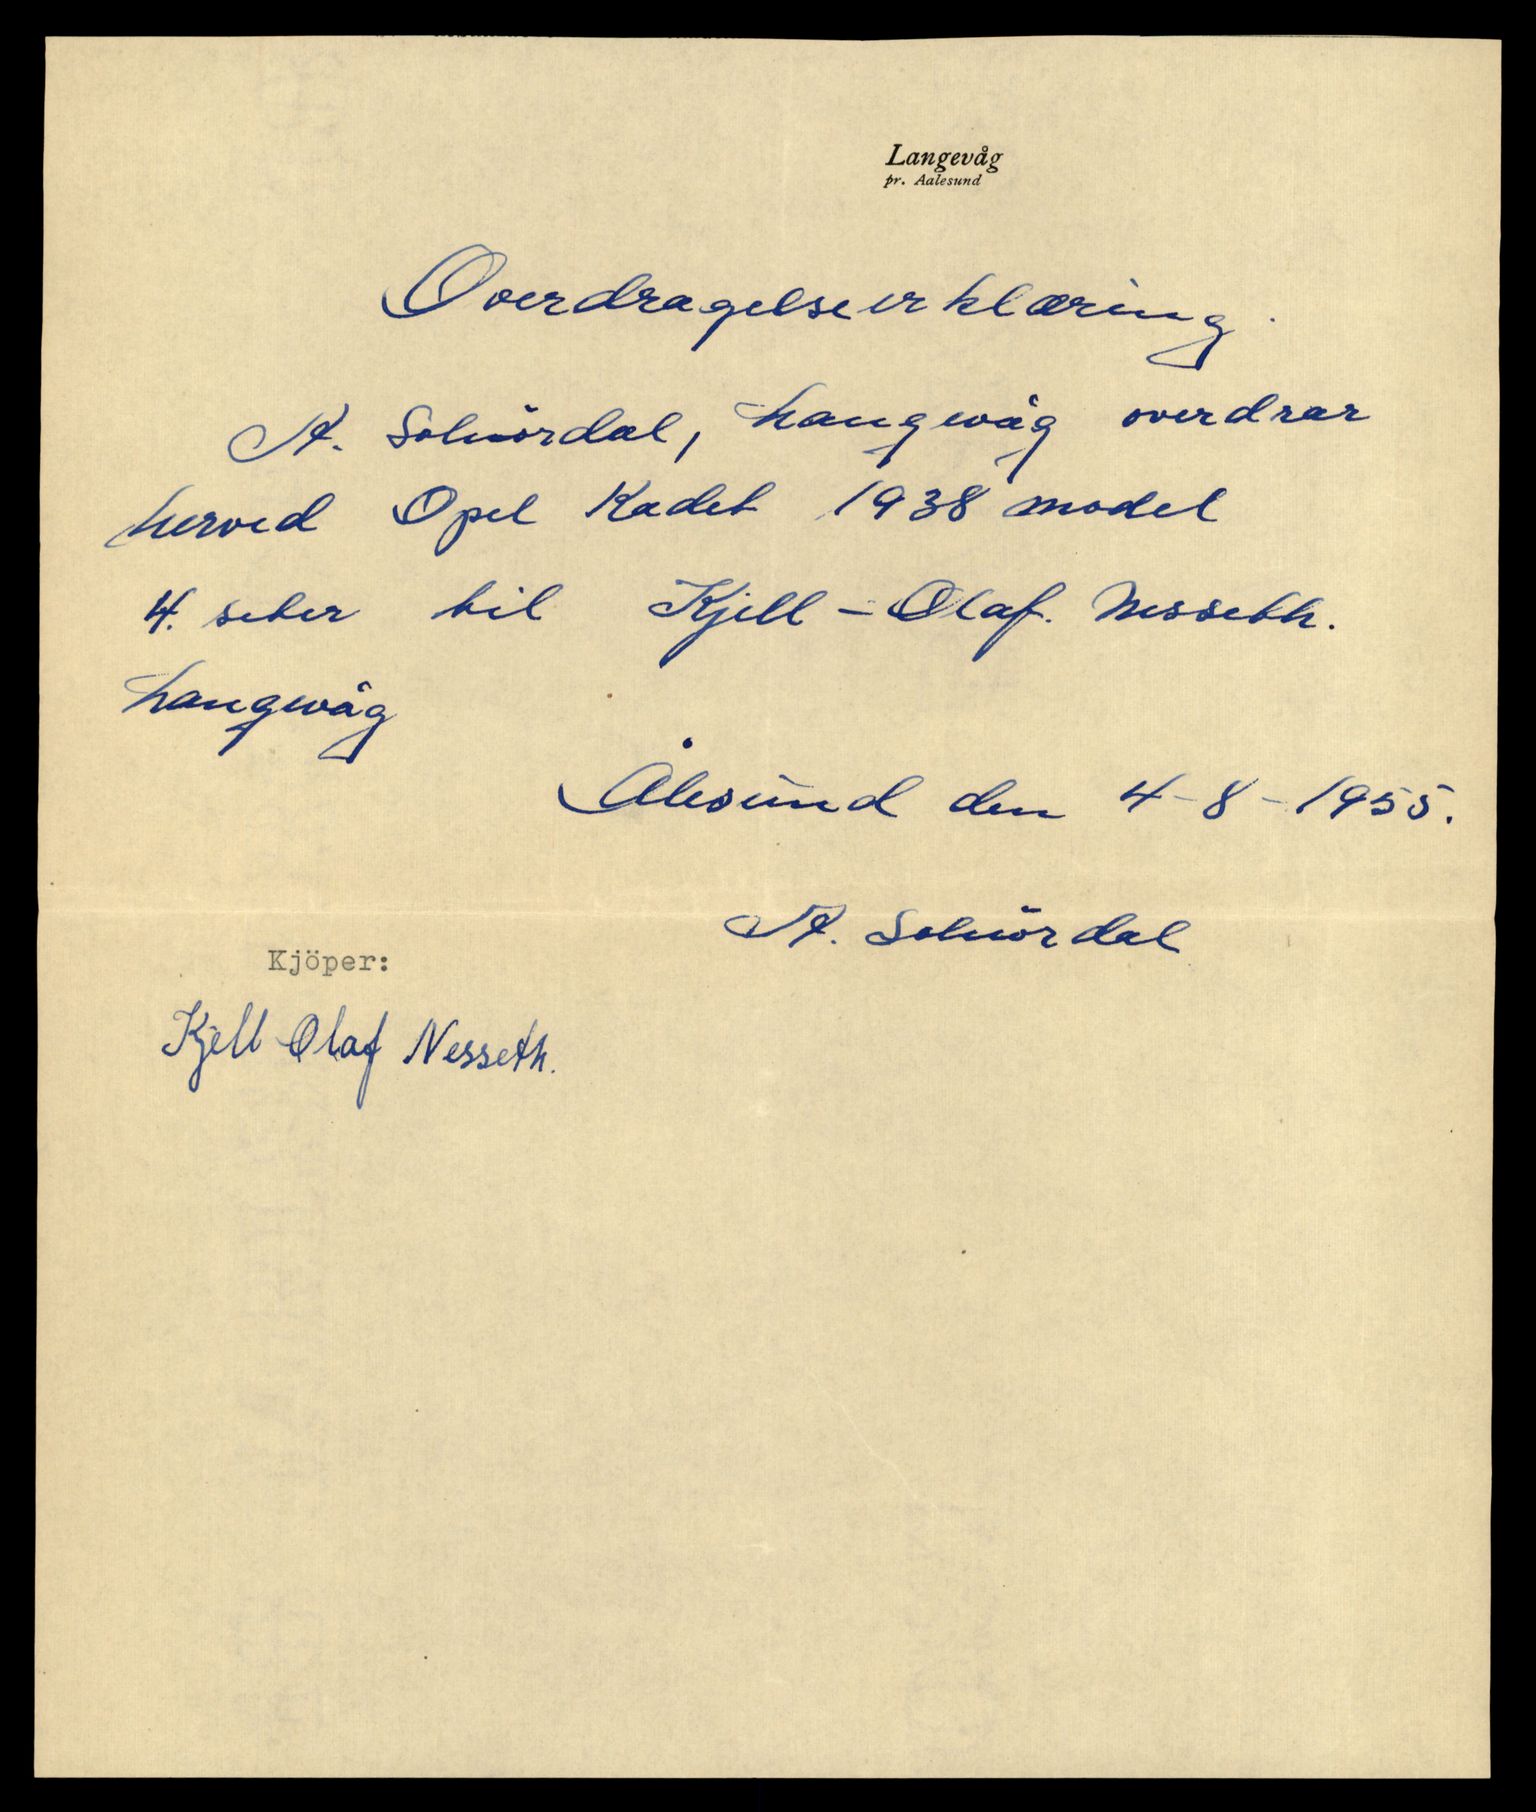 Langevåg
pr. Aalesund
Overdragelseerklæring.
A. Solnördal, Langevåg overdrar
herved Opel Kadet 1938 model
4. seter til Kjell - Olaf. Nesseth.
Langevåg
Ålesund den 4-8-1955.
A. Solnördal
Kjöper:
Kjell Olaf Nesseth.